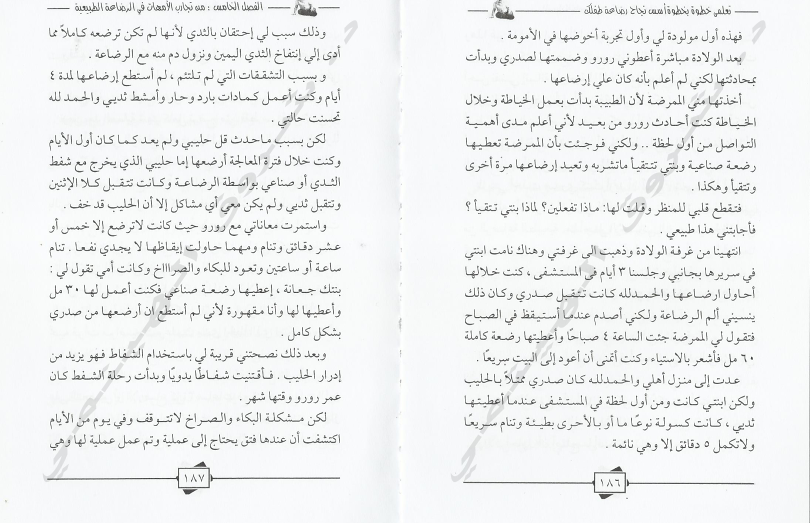 تعلمي خطوة بخطوة أسس نجاح رضاعة طفلك
فهذه أول مولودة لي وأول تجربة أخوضها في الأمومة .
بعد الولادة مباشرة أعطوني رورو وضممتها لصدري وبدأت
بمحادثتها لكني لم أعلم بأنه كان علي إرضاعها .
أخذتها مني الممرضة لأن الطبيبة بدأت بعمل الخياطة وخلال
الخياطة كنت أحادث رورو من بعيد لأني أعلم مدى أهمية
التواصل من أول لحظة .. ولكني فوجئت بأن الممرضة تعطيها
رضعة صناعية وبنتي تتتقيأ ماتشربه وتعيد إرضاعها مرة أخرى
وتتقيأ وهكذا .
فتقطع قلبي للمنظر وقلت لها: ماذا تفعلين؟ لماذا بنتي تتقيأ ؟
فأجابتني هذا طبيعي .
انتهينا من غرفة الولادة وذهبت الى غرفتي وهناك نامت ابنتي
في سريرها بجانبي وجلسنا ٣ أيام في المستشفى ، كنت خلالها
أحاول ارضاعها والحمدلله كانت تتقبل صدري وكان ذلك
ينسيني ألم الرضاعة ولكني أصدم عندما أستيقظ في الصباح
فتقول لي الممرضة جئت الساعة ٤ صباحاً وأعطيتها رضعة كاملة
٦٠ مل فأشعر بالاستياء وكنت أتمنى أن أعود إلى البيت سريعًا .
عدت إلى منزل أهلي والحمدلله كان صدري ممتلأ بالحليب
ولكن ابنتي كانت ومن أول لحظة في المستشفى عندما أعطيتها
ثديي ، كانت كسولة نوعًا ما أو بالأحرى بطيئة وتنام سريعًا
ولاتكمل ٥ دقائق إلا وهي نائمة .
١٨٦
الفصل الخامس : من تجارب الأمهات في الرضاعة الطبيعية
وذلك سبب لي إحتقان بالثدي لأنها لم تكن ترضعه كاملاً مما
أدى إلي إنتفاخ الثدي اليمين ونزول دم منه مع الرضاعة .
و بسبب التشققات التي لم تلتئم ، لم أستطع إرضاعها لمدة ٤
أيام وكنت أعمل كمادات بارد وحار وأمشط ثديي والحمد لله
تحسنت حالتي .
لكن بسبب ماحدث قل حليبي ولم يعد كما كان أول الأيام
وكنت خلال فترة المعالجة أرضعها إما حليبي الذي يخرج مع شفط
الثدي أو صناعي بواسطة الرضاعة وكانت تتقبل كلا الإثنين
وتتقبل ثديي ولم يكن معي أي مشاكل إلا أن الحليب قد خف .
واستمرت معاناتي مع رورو حيث كانت لاترضع إلا خمس أو
عشر دقائق وتنام ومهما حاولت إيقاظها لا يجدي نفعا . تنام
ساعة أو ساعتين وتعود للبكاء والصراااخ وكانت أمي تقول لي :
بنتك جعانة ، إعطيها رضعة صناعي فكنت أعمل لها ٣٠ مل
وأعطيها لها وأنا مقهورة لأني لم أستطع ان أرضعها من صدري
بشكل كامل .
وبعد ذلك نصحتني قريبة لي باستخدام الشفاط فهو يزيد من
إدرار الحليب . فـأقتنيت شفاطًا يدويًا وبدأت رحلة الشفط كان
عمر رورو وقتها شهر .
لكن مشكلة البكاء والصراخ لاتتوقف وفي يوم من الأيام
اكتشفت أن عندها فتق يحتاج إلى عملية وتم عمل عملية لها وهي
١٨٧